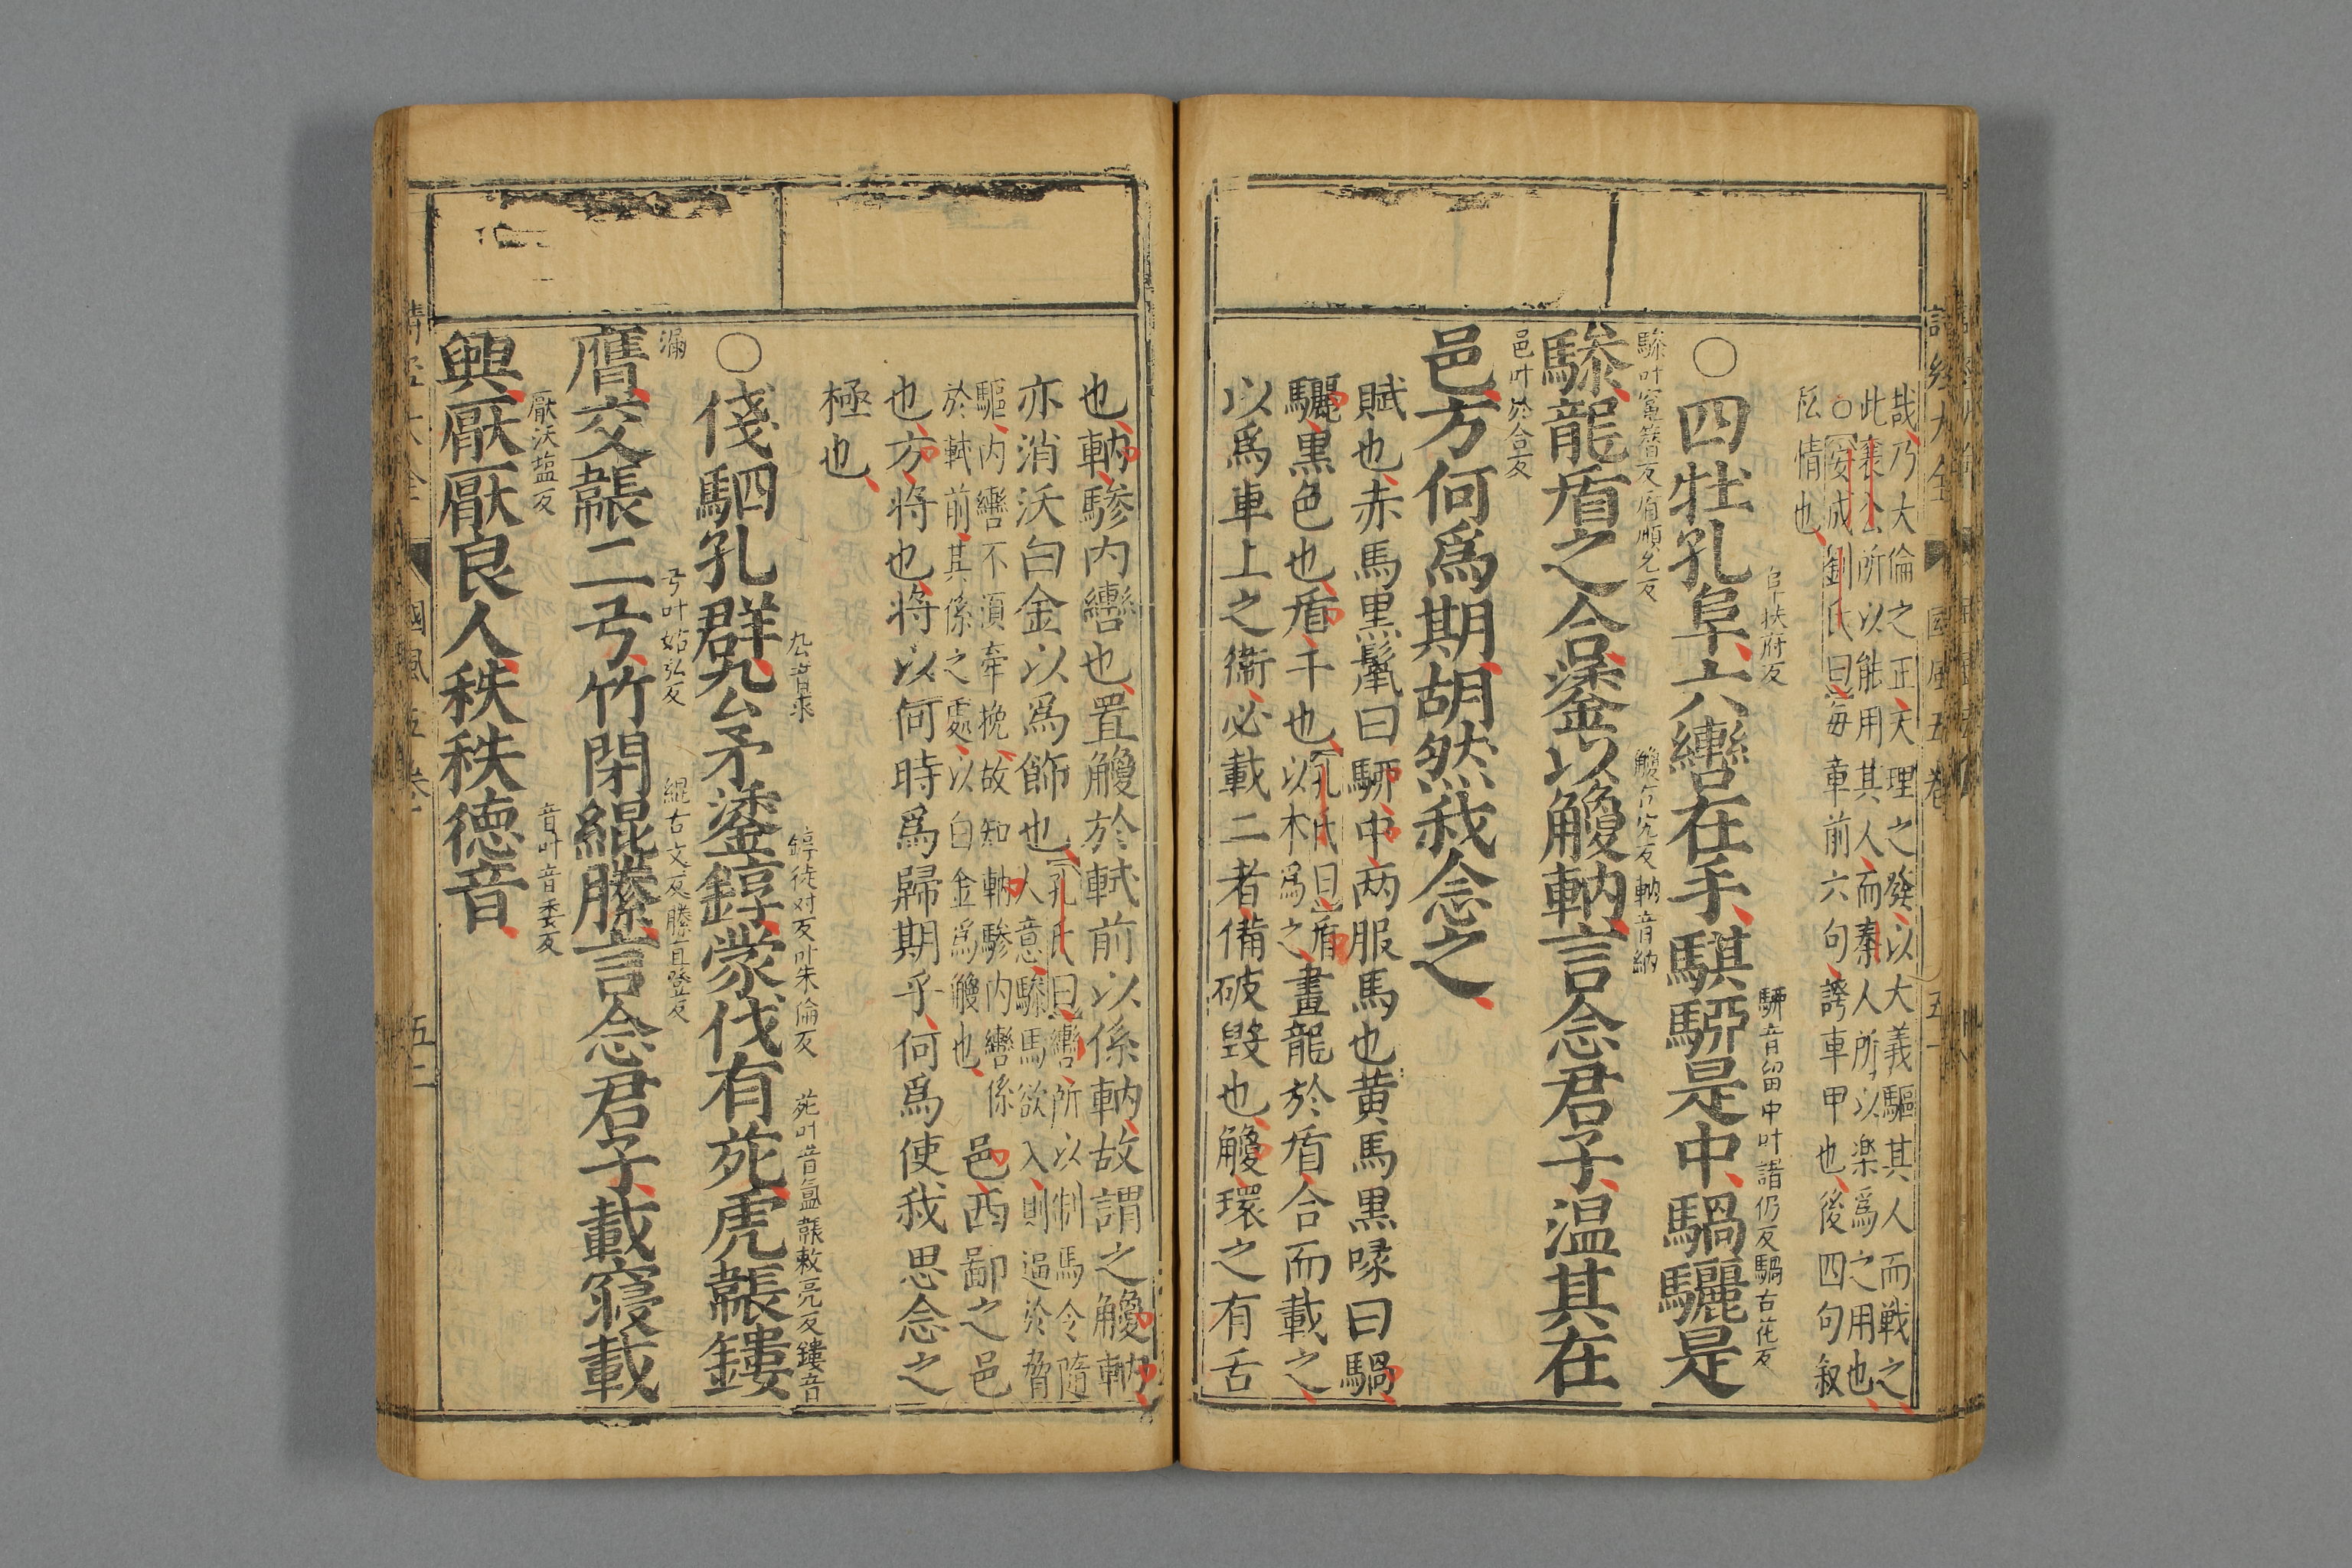 哉乃大倫之正天理之發以大義驅其人而戰之
此襄公所以能用其人而秦人所以楽爲之用也
○安成劉氏曰每章前六句誇車甲也後四句叙
私情也
阜扶府反
騮音留中叶諸仍反騧古花反
○四牡孔阜六轡在手騏騮是中騧驪是
驂叶䆮簪反盾順允反
觼古穴反軜音納
驂龍盾之合鋈以觼軜言念君子温其在
邑叶於合反
邑方何爲期胡然我念之
賦也赤馬黒鬛曰騮中两服馬也黄馬黒喙曰騧
驪黒色也盾干也孔氏曰盾以木爲之畫龍於盾合而載之
以爲車上之衞必載二者備破毀也觼環之有舌
也軜驂内轡也置觼於軾前以係軜故謂之觼軜
亦消沃白金以爲飾也孔氏曰轡所以制馬令隨人意驂馬欲入則逼於脅
驅内轡不須牽挽故知軜驂内轡係於軾前其係之處以白金爲觼也邑西鄙之邑
也方将也将以何時爲歸期乎何爲使我思念之
極也
厹音求
錞徒対反叶朱倫反
苑叶音氲韔敕亮反鏤音
○俴駟孔群厹矛鋈錞蒙伐有苑虎韔鏤
漏
弓叶姑弘反
緄古文反縢直登反
膺交韔二弓竹閉緄縢言念君子載寢載
厭沃塩反
音叶音委反
興厭厭良人秩秩徳音
詩経大全
國風五卷
五一
五二